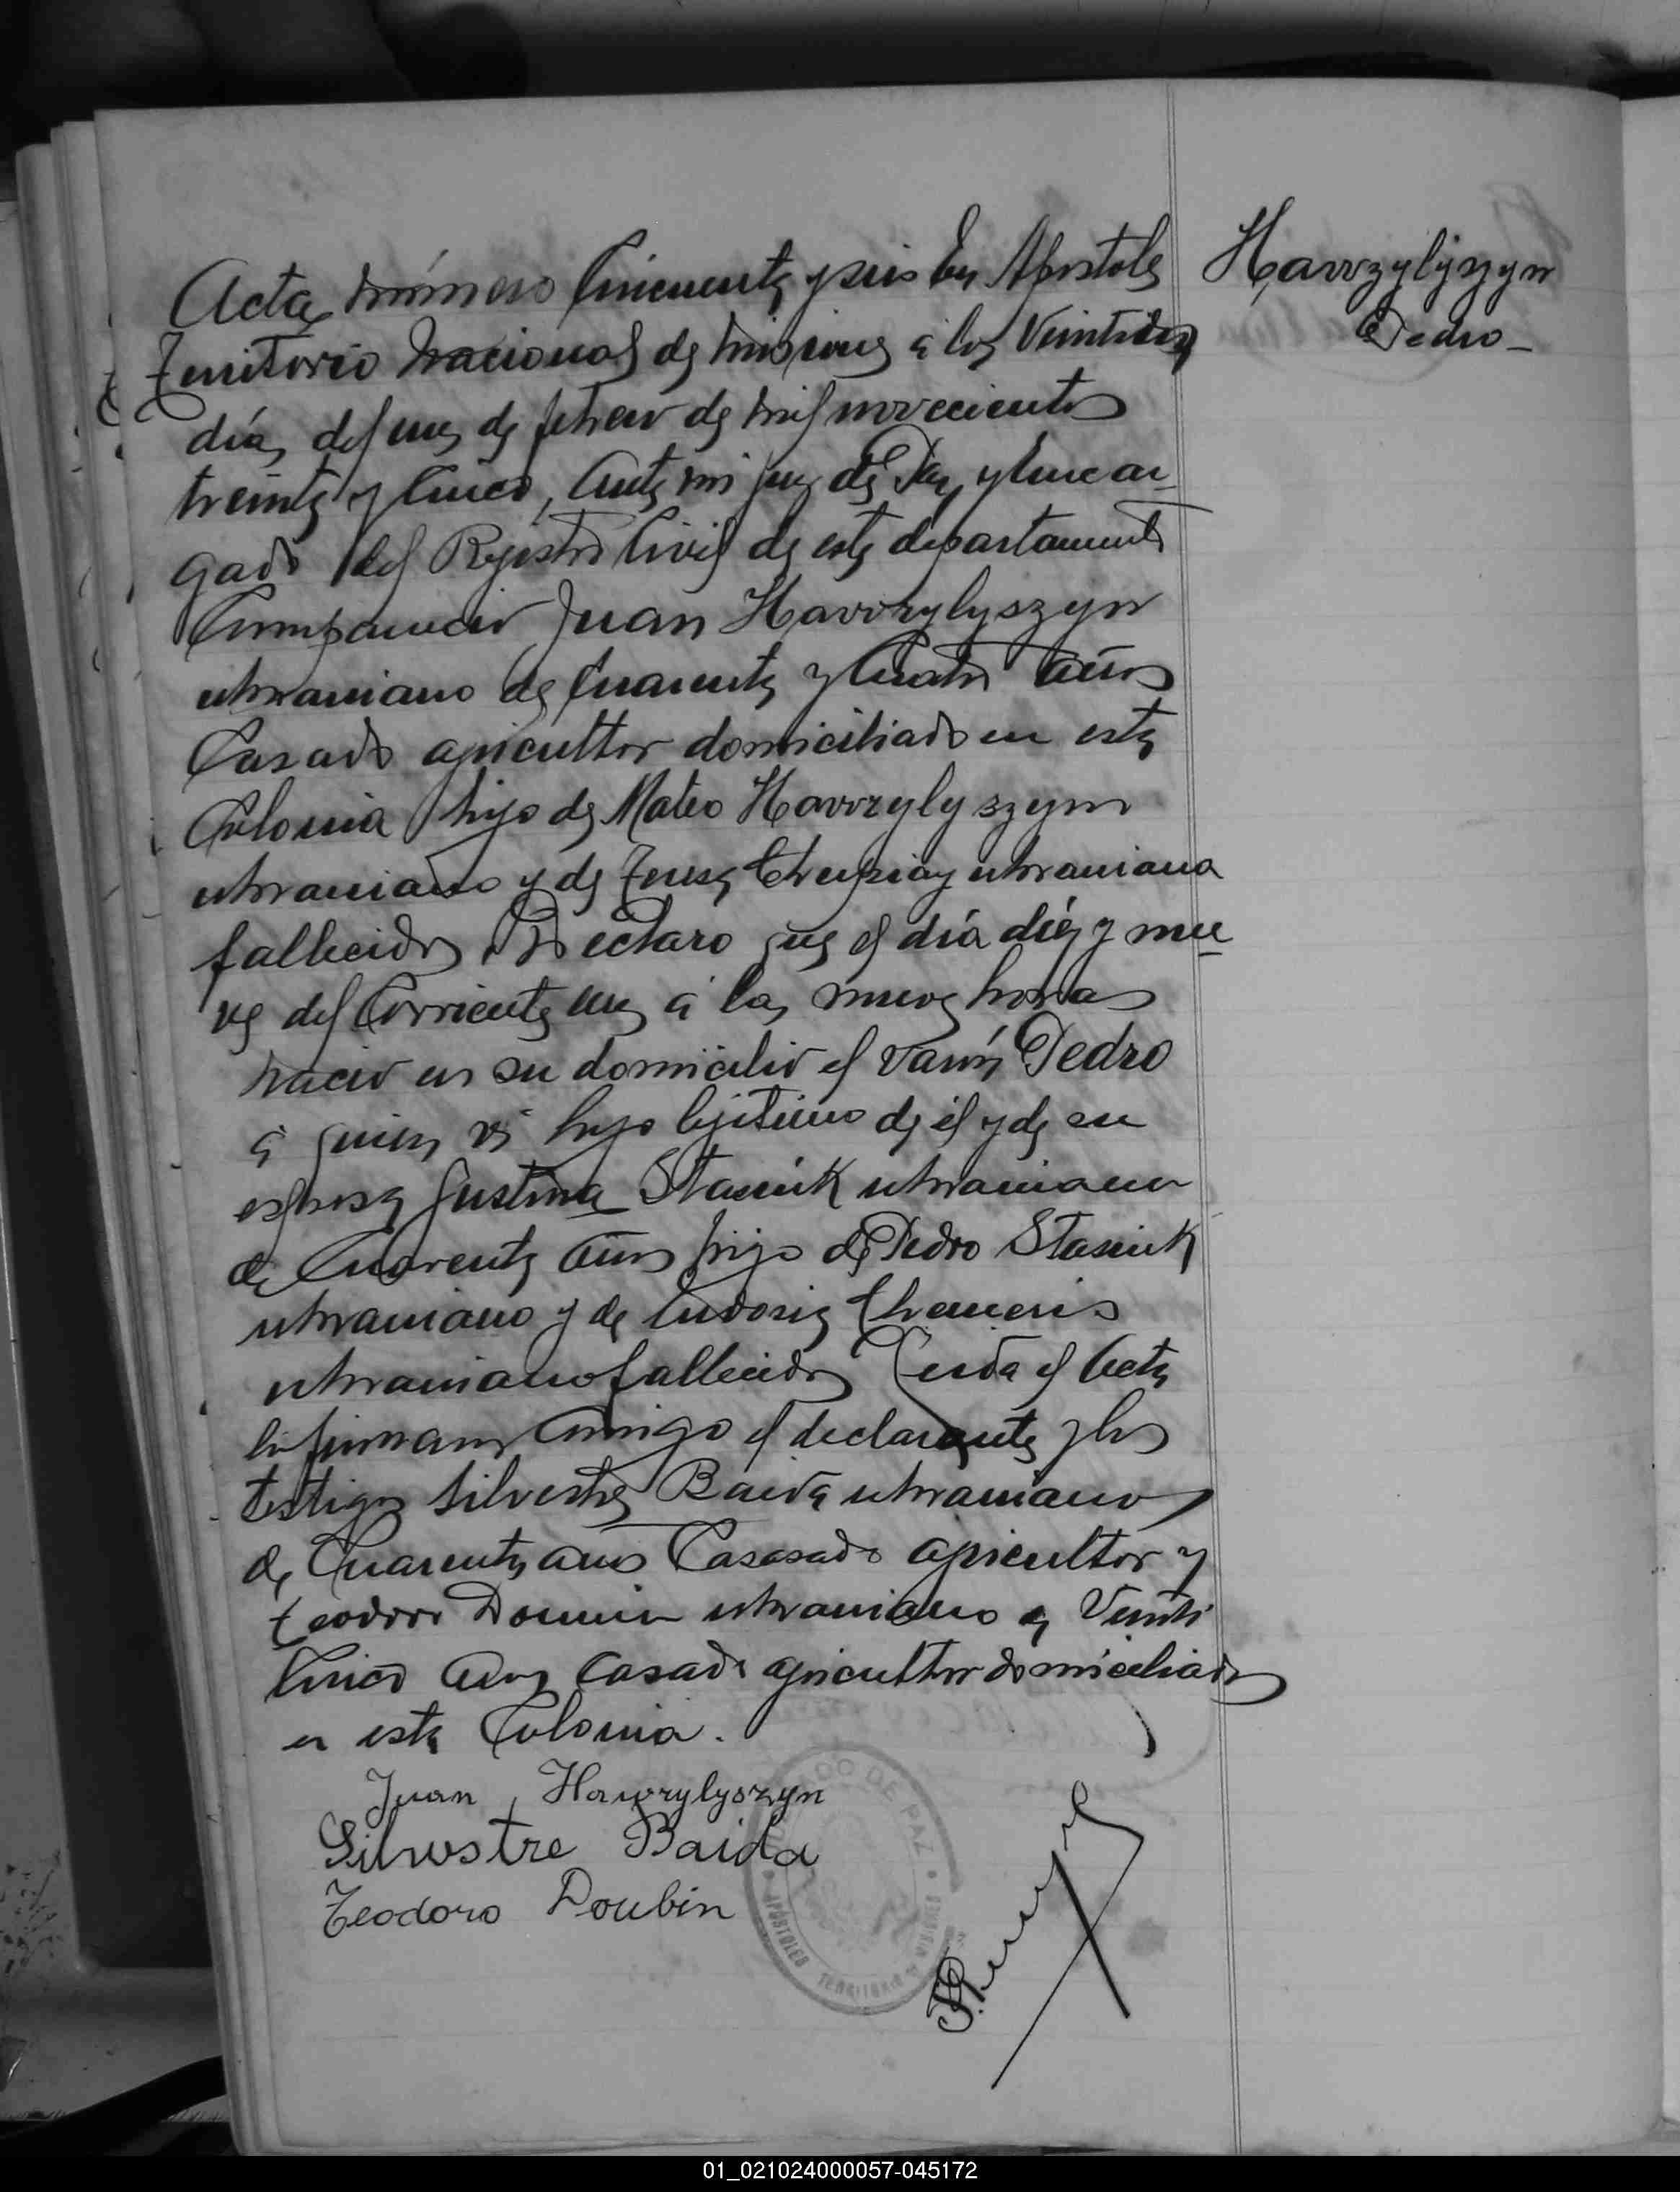 Acta número Cincuenta y seis En Apostoles
Territorio Nacional de Misiones á los Veintidos
días del mes de febrero de mil novecientos
treinta y cinco, Ante mi Juez de Paz y Encar-
gado del Registro Civil de este departamento
Compareció Juan Hawrylyszyn
ukraniano de Cuarenta y Cuatro años
Casado agricultor domiciliado en esta
Colonia hijo de Mateo Hawrylyszyn
ukraniano y de Teresa ukraniana
fallecidos Declaro que el día diez y nue
ve del Corriente mes á las nueve horas
nació en su domicilio el varón Pedro
á quien vi hijo lejitimo de el y de su
esposa Justina Stasiuk ukraniana
de Cuarenta años hija de Pedro Stasiuk
ukraniano y de
ukraniano fallecidos Leida el Acta
la firman Conmigo el declarante y los
testigos Silvestre Baida ukraniano
de Cuarenta años Casasado agricultor y
Teodoro ukraniano de Veinti
Cinco años Casado agricultor domiciliados
en esta Colonia.
Juan Hawrylyszyn
Silvestre Baida
Teodoro Doubin
Hawrzylyszyn
Pedro-
JUZGADO DE PAZ
APÓSTOLES TERRITORIO MISIONES
01_021024000057-045172